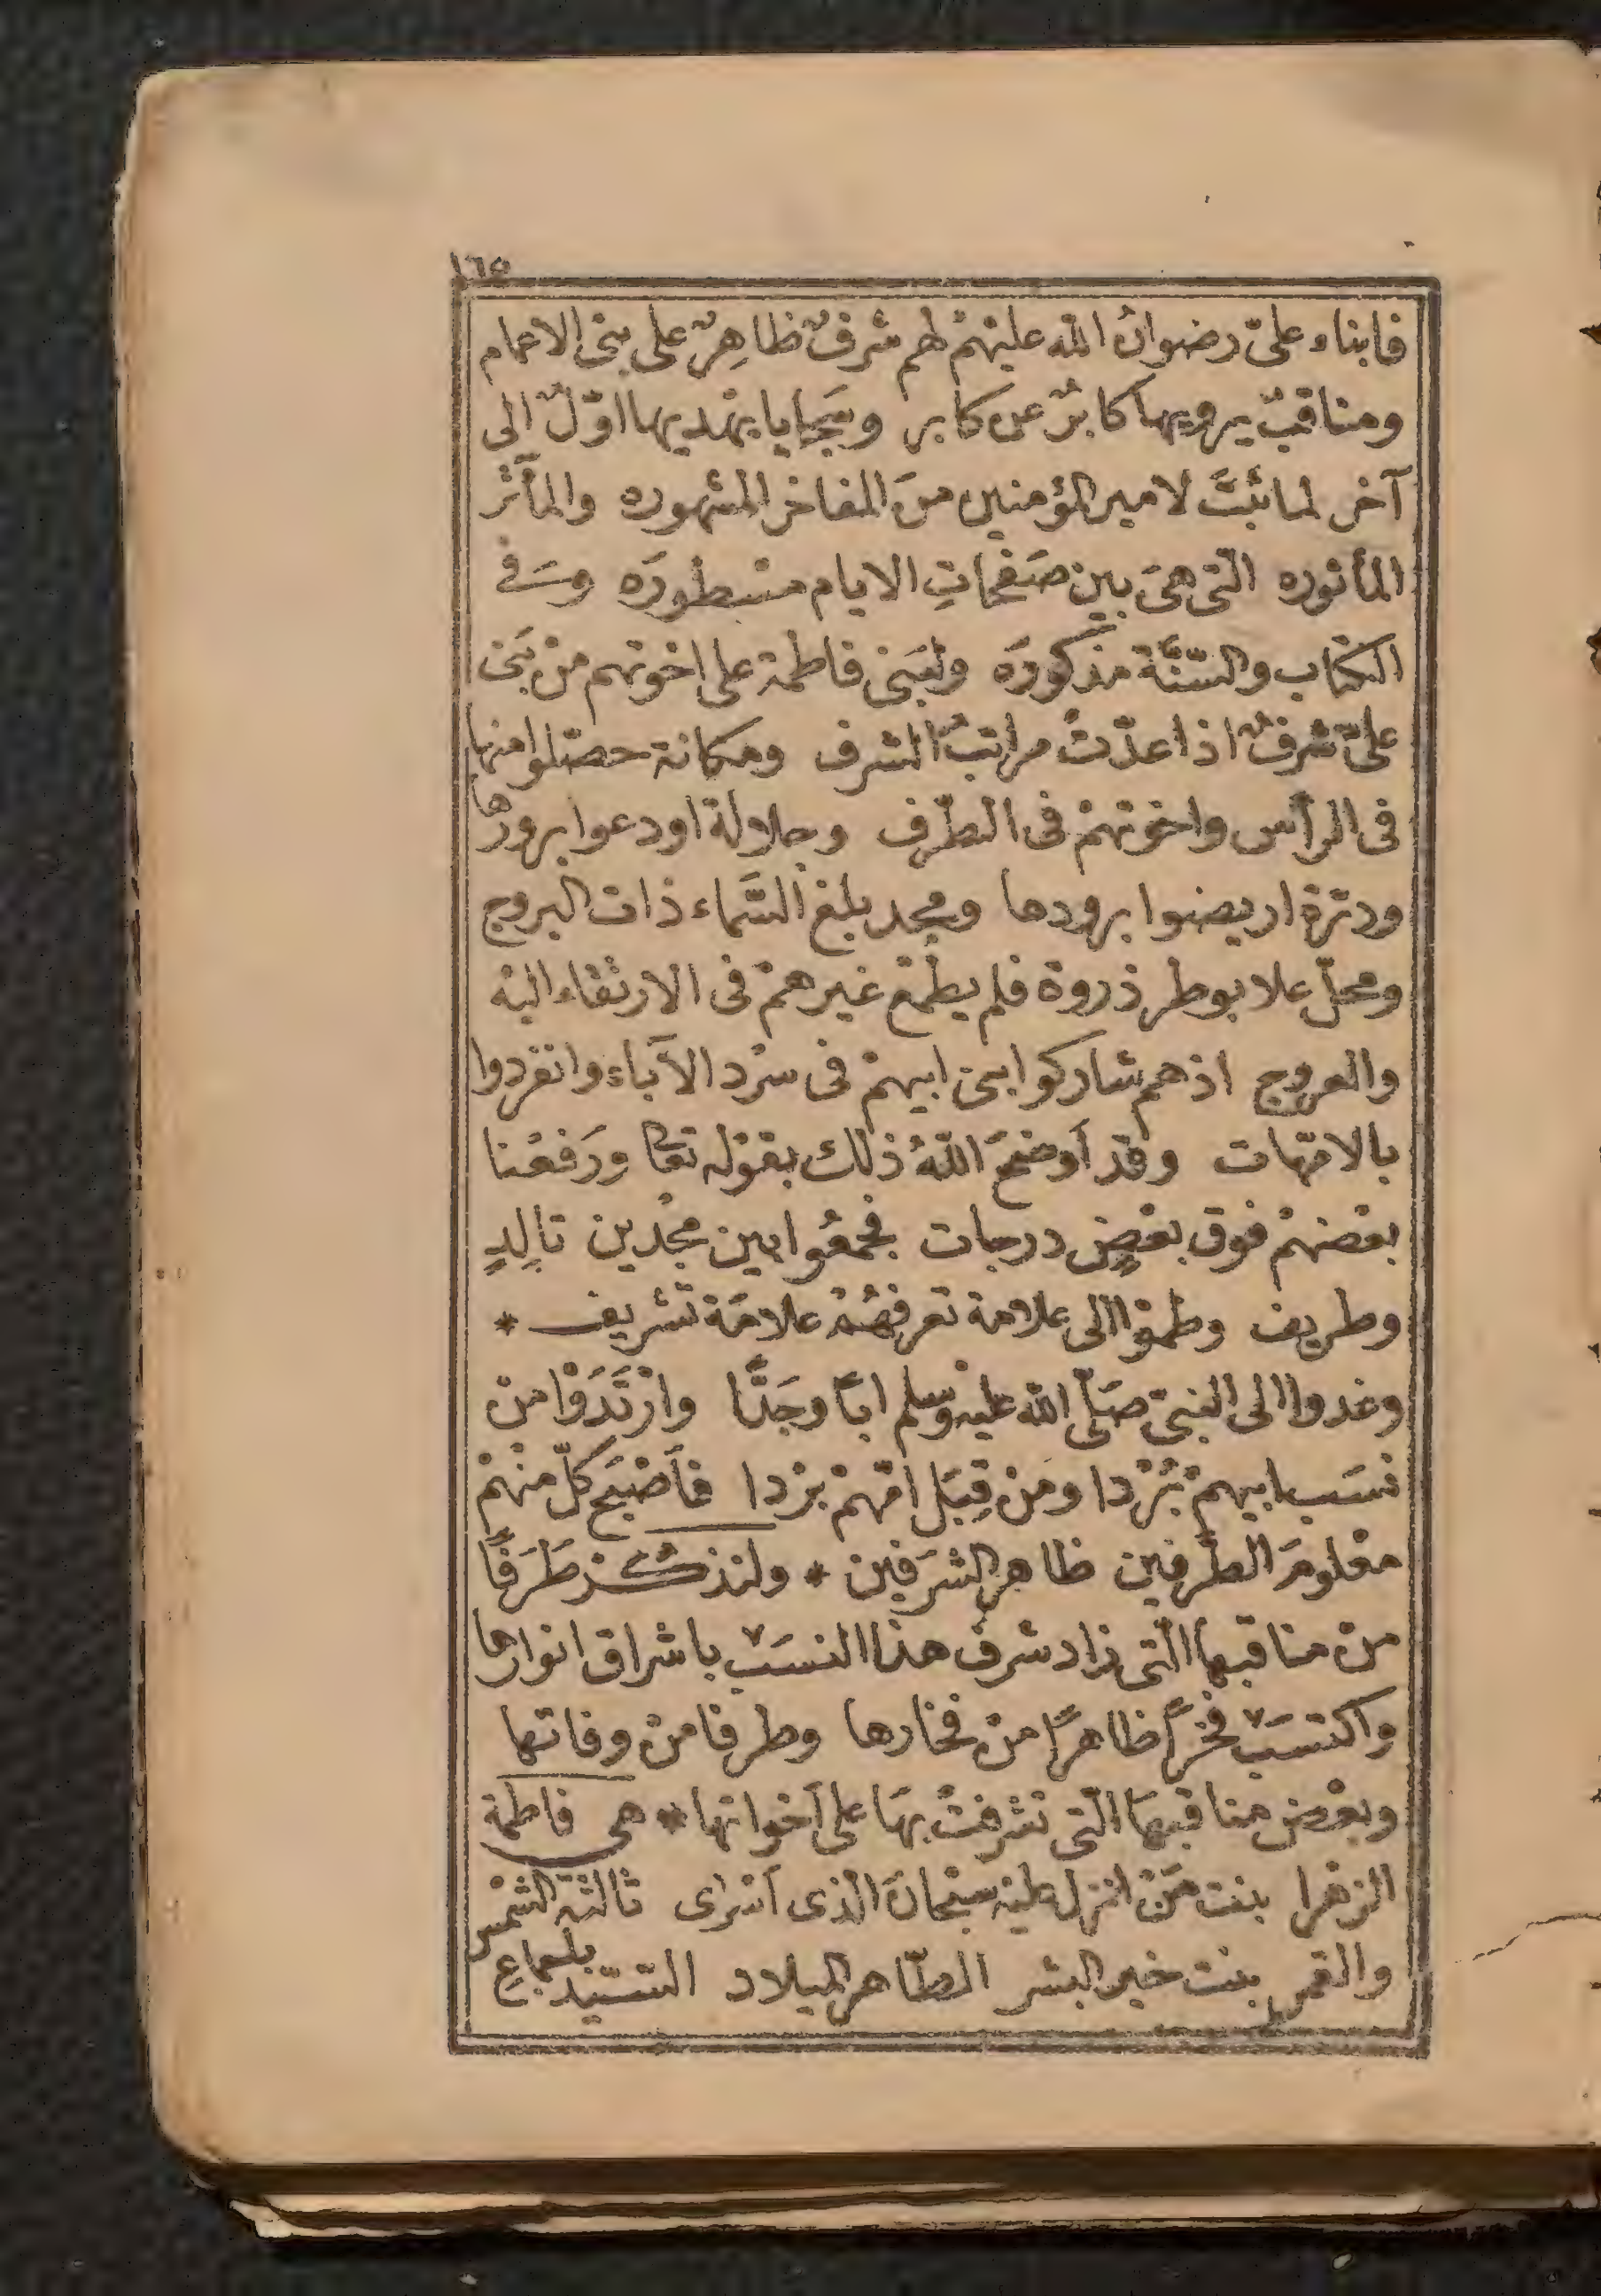 ١٦٥
فابناء علىّ رضوانُ الله عليهمْ لهم شرفٌ ظاهِرٌ على بنى الاعمام
ومناقبٌ يرويها كابرٌ عن كابر وسَجايا يهديها اوّلٌ الى
آخر لما ثبَتَ لامير المؤمنين منَ المفاخر المشهوره والمآثر
المأثوره الّتى هىَ بين صَفحاتِ الايام مسْطورَه وسَفى
الكتاب والسّنَّة مذكورَه ولبَنى فاطمة على اخوتهم منْ بَنى
علىّ شرفٌ اذا عدّتْ مراتبُ الشرف ومكانة حصّلوا منها
فى الرأس واخوتهمْ فى الطّرف وجلالة اودعوا برودها
ودرّة ارْيضوا برودها ومجد بلغ السَّماء ذات البروج
ومحلّ علا بوطر ذروة فلم يطْمع غيرهمْ فى الارتقاء اليْه
والعروج اذ هم شاركوا بنى ابيهمْ فى سرْد الآباء وانفردوا
بالامّهات وقدْ اَوضحَ اللّهُ ذلك بقوْله تعا ورَفعْنا
بعْضهمْ فوق بعْضٍ درجات فجمعُوا بين مجْدين تالِدٍ
وطريف وضمّوا الى علامة تعرفهُمْ علامَة تشريف *
وغدوا الى النبىّ صَلّى اللّه عليه وسلم اباً وجَدًّا وارْتَدَوْا من
نسَب ابيهمْ بُرْدا ومنْ قِبَل امّهمْ بردا فأَصْبح كلّ منْهمْ
معْلومَ الطّرفين ظاهر الشرَفين * ولنذكُرْ طَرَفاً
منْ مناقبها الّتى زاد شرف هذا النسَب باشراق انوارها
واكتسَب فخْراً ظاهراً منْ فخارها وطرفا منْ وفاتها
وبعْض مناقبهَا الّتى تشرفتْ بهَا على اَخواتها * هى فاطمة
الزهرا بنت مَنْ انزل عليْه سبْحانَ الّذى اَسْرى ثالثة الشمْس
والقمر بنت خير البشر الطّاهر الميلاد السّيّد باجماع